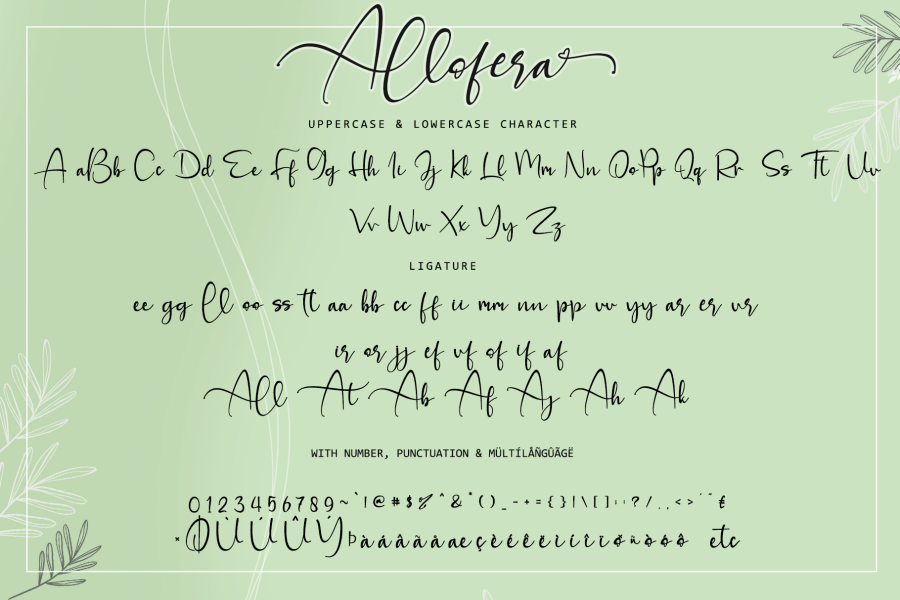 Allofera
UPPERCASE & LOWERCASE CHARACTER
A aBb Cc Dd Ee Ff Gg Hh Ii Jj Kk Ll Mm Nn OoPp Qq Rr Ss Tt Uu
Vv Ww Xx Yy Zz
LIGATURE
ee gg ll oo ss tt aa bb cc ff ii mm nn pp vv yy ar er ur
ir or jj ef uf of if af
All At Ab Af Aj Ah Ak
WITH NUMBER, PUNCTUATION & MÜLTÍLÂÑGÛÃGË
0123456789~`!@#$%^&*()_-+={}|\[]:;?/..<>'"€
×ØÙÚÛÝÞàáâãäåæçèéêëìíîïðñòóô etc